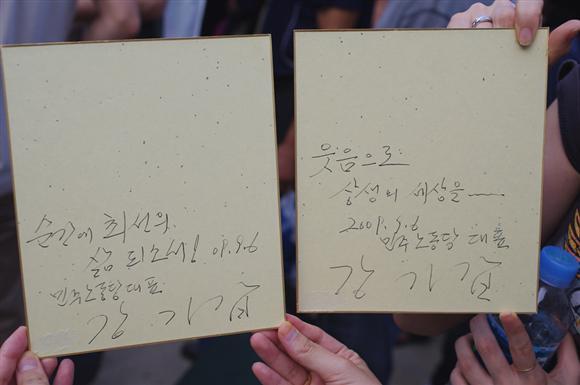 순간에 최선의
삶 되소서! 09.9.6
민주노동당 대표
강 기 갑
웃음으로
상생의 세상을
2009.9.6
민주노동당 대표
강 기 갑